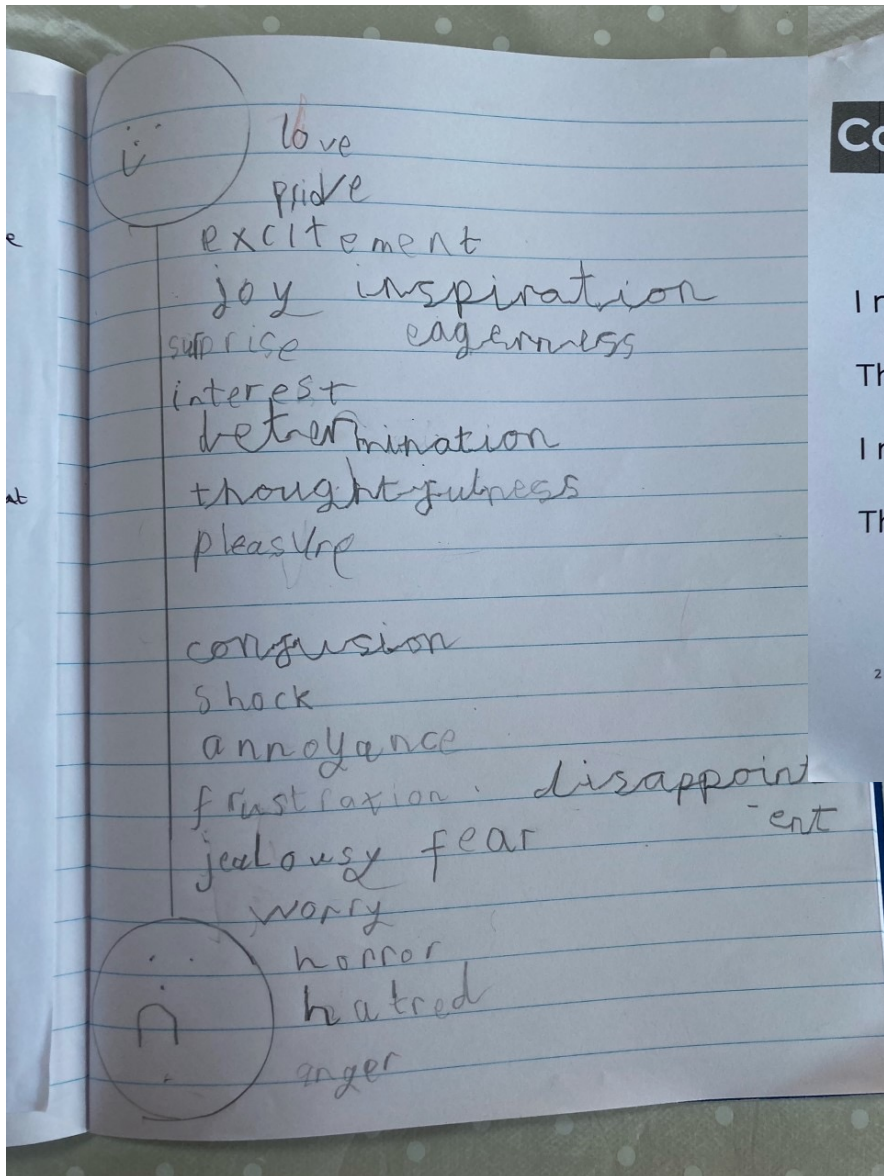 love
pride
excitement
joy inspiration
surprise eagerness
interest
determination
thoughtfulness
pleasure
confusion
shock
annoyance
frustration. disappoint
-ent
jealousy fear
worry
horror
hatred
anger
e
at
Co
I r
Th
I r
Th
2